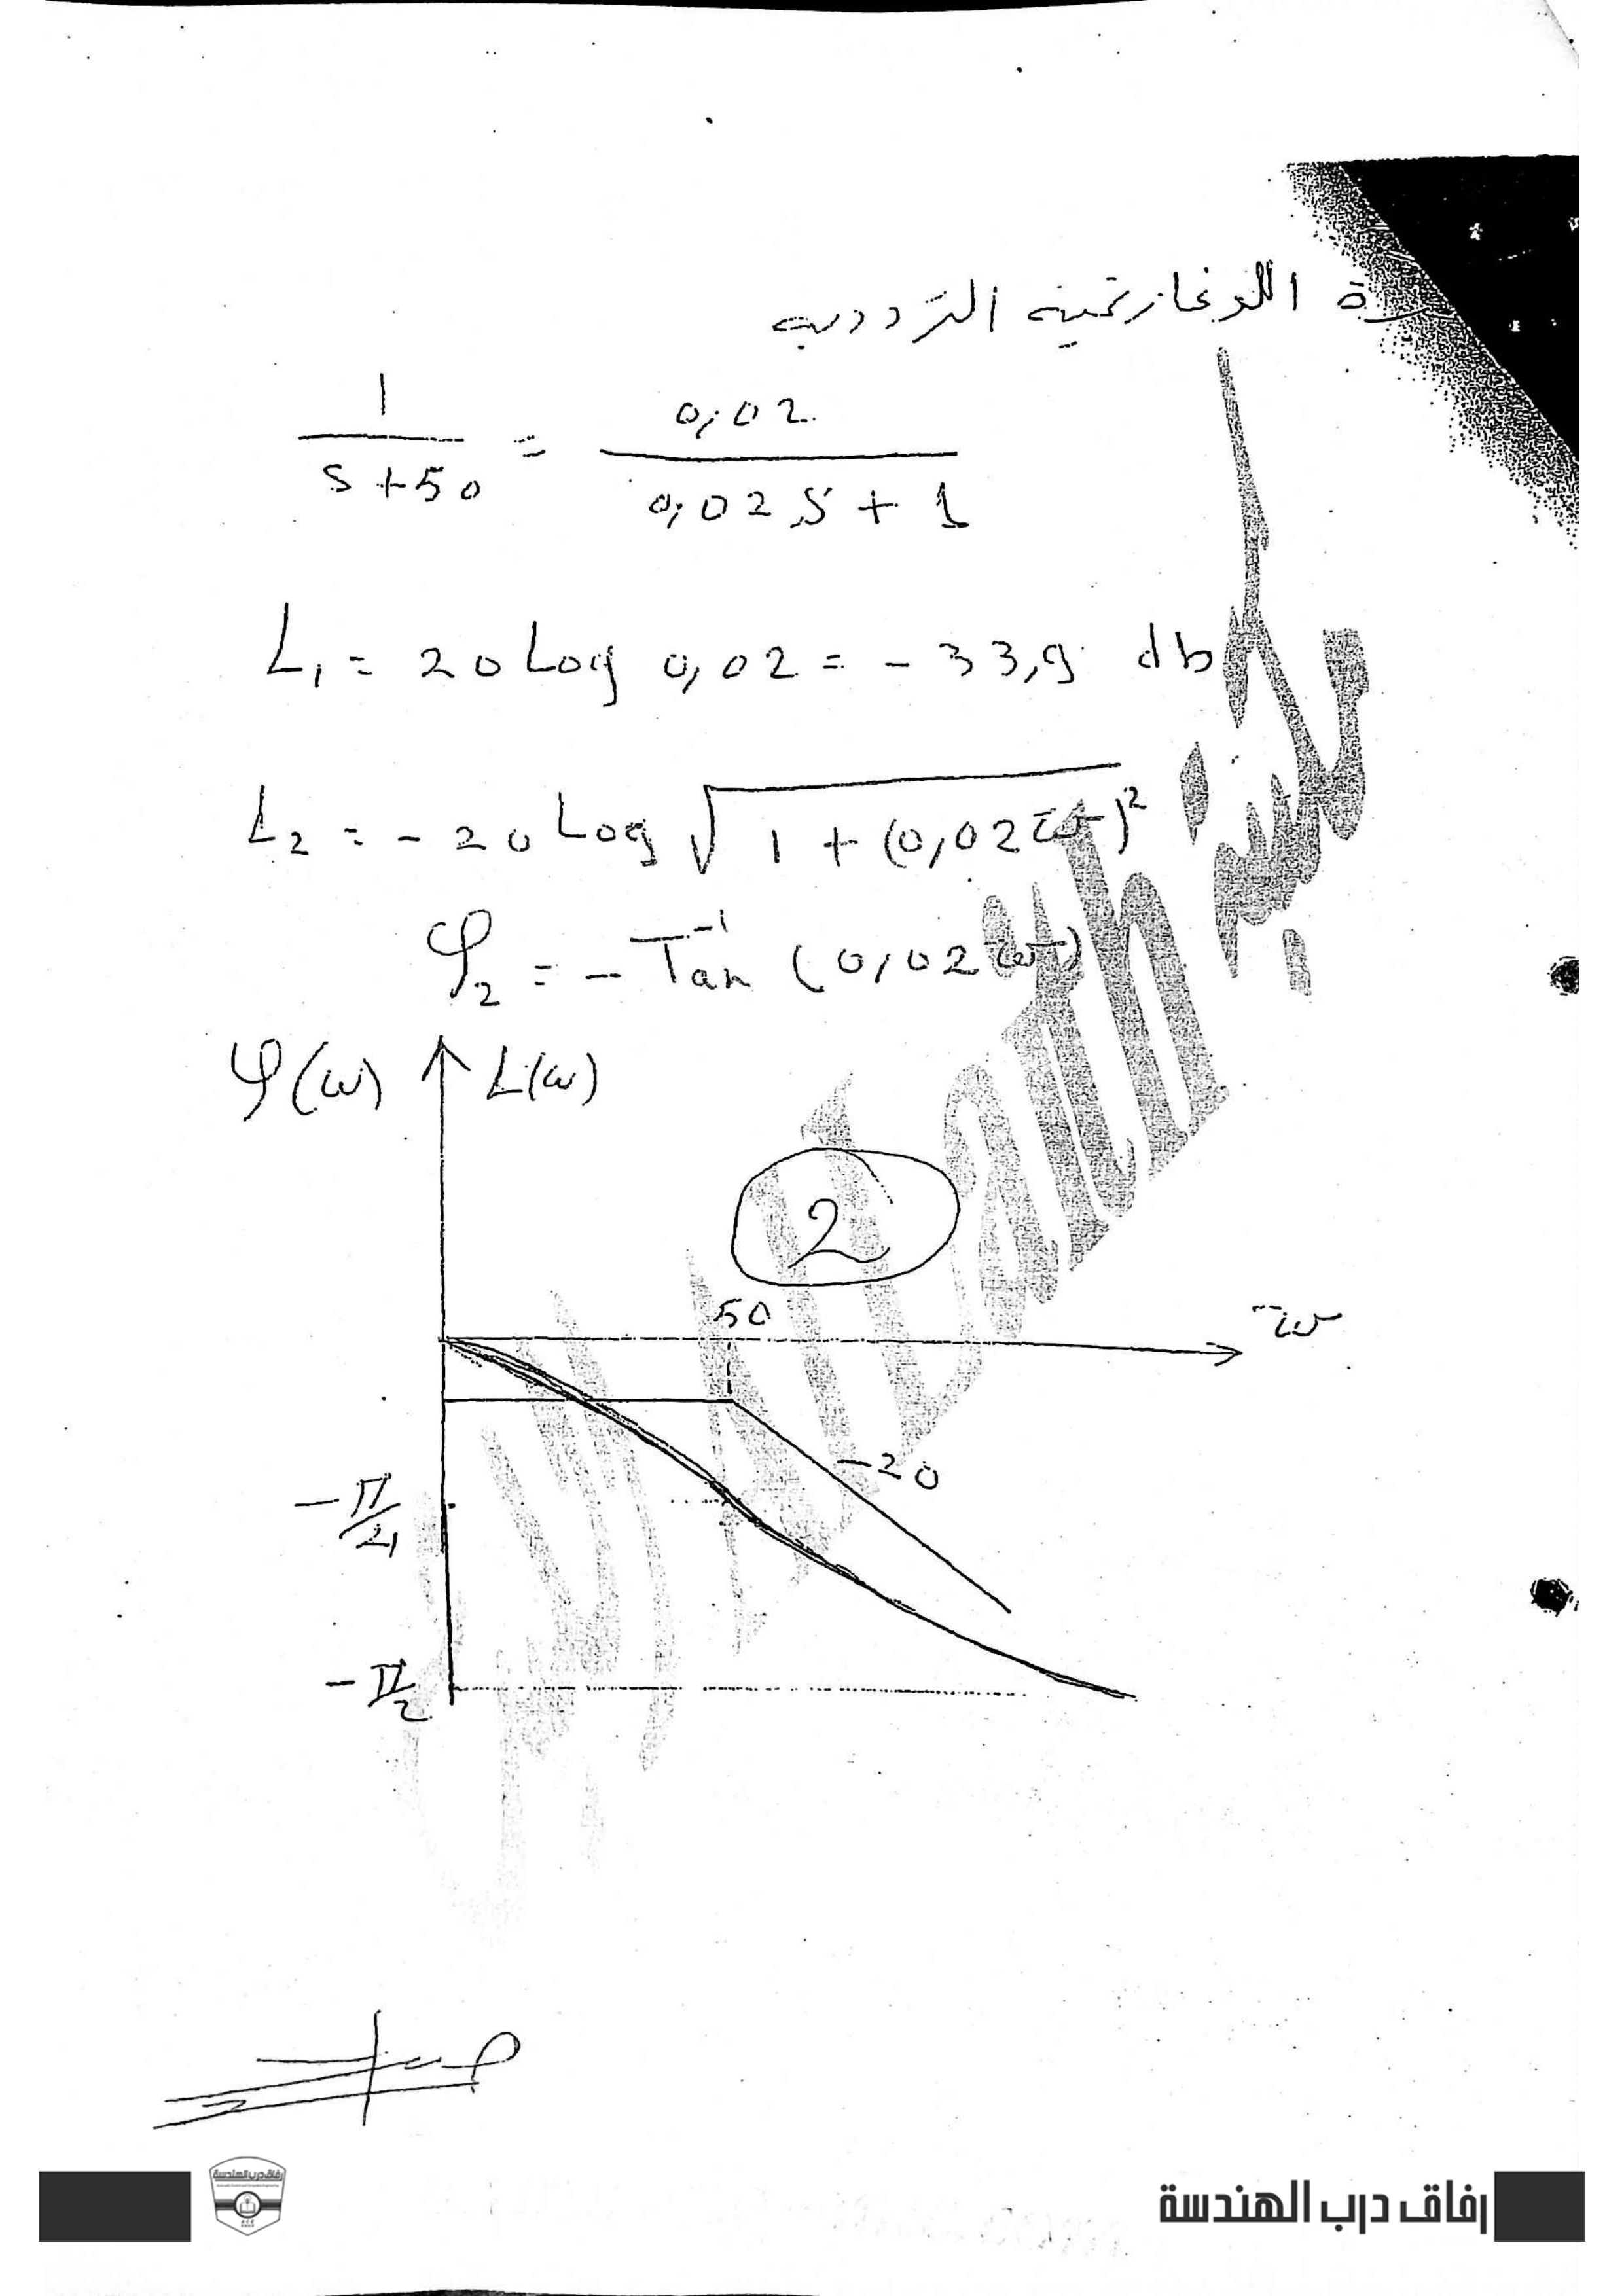 اللوغاريتمية الترددية
1 / (s+50) = 0,02 / (0,02 s + 1)
L₁ = 20 Log 0,02 = - 33,9 db
L₂ = - 20 Log √(1 + (0,02 ω)²)
φ₂ = - Tan⁻¹ (0,02 ω)
φ(ω) L(ω)
2
50 ω
-20
-π/4
-π/2
رفاق درب الهندسة